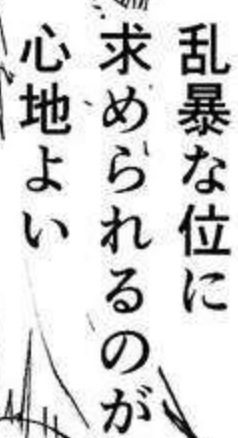 乱暴な位に
求められるのが
心地よい